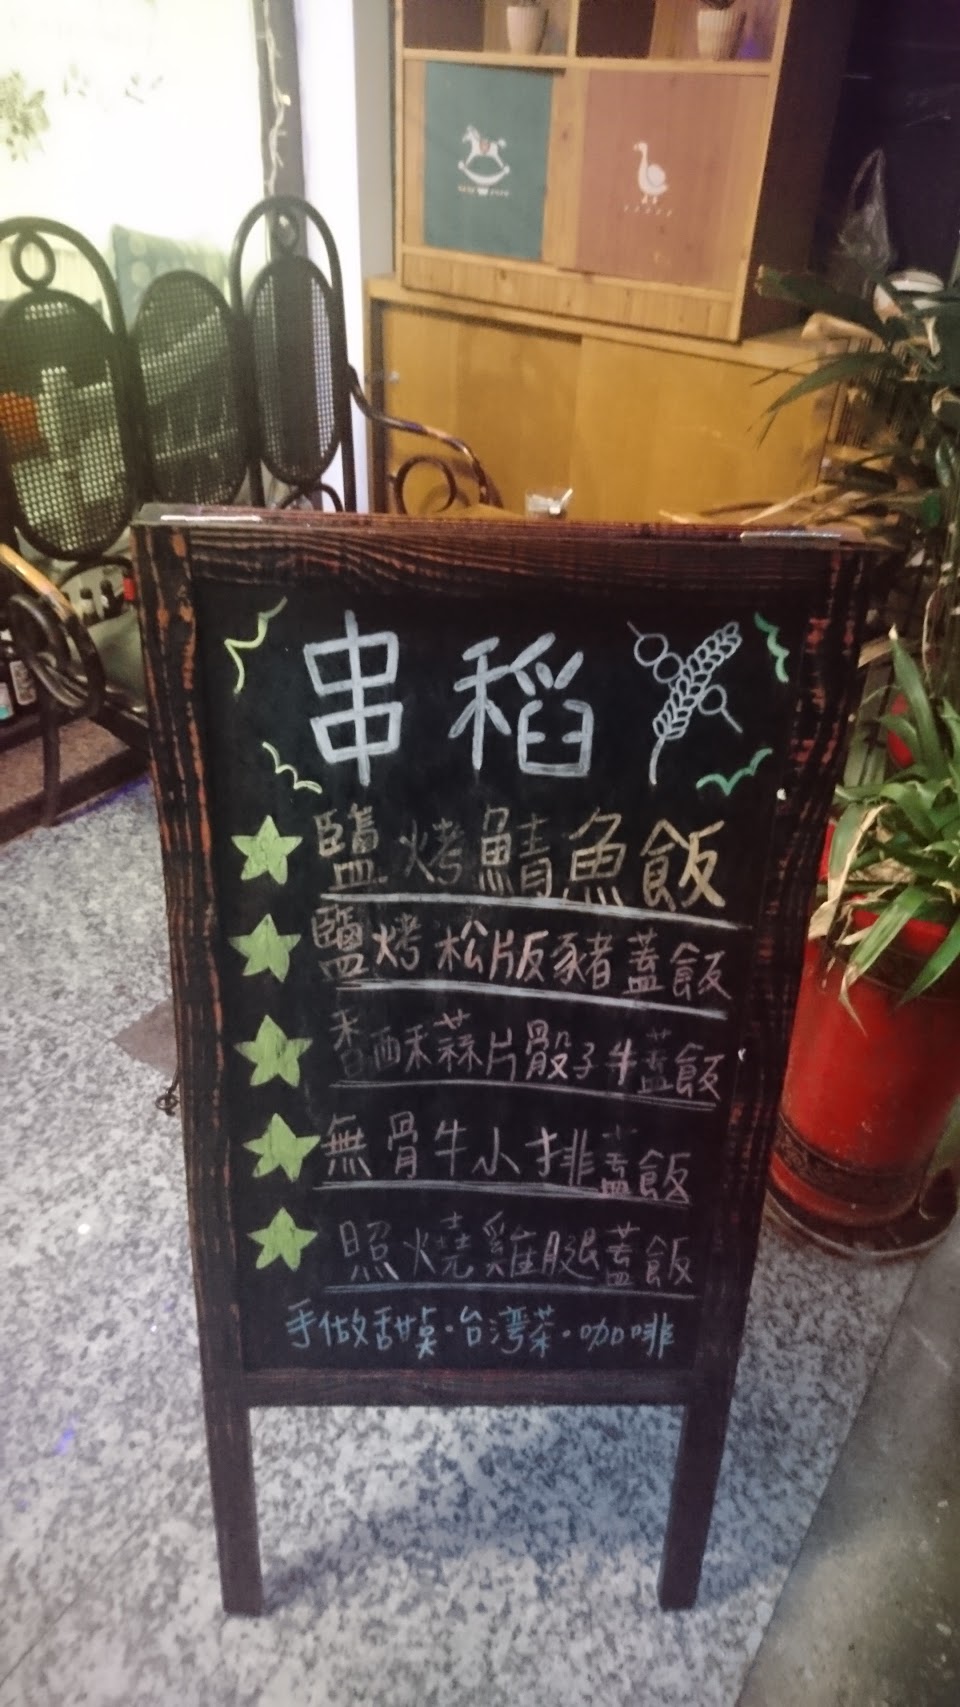 串稻
鹽烤鯖魚飯
鹽烤松版豬蓋飯
香酥蒜片骰子牛蓋飯
無骨牛小排蓋飯
照燒雞腿蓋飯
手做甜桌·台灣茶·咖啡